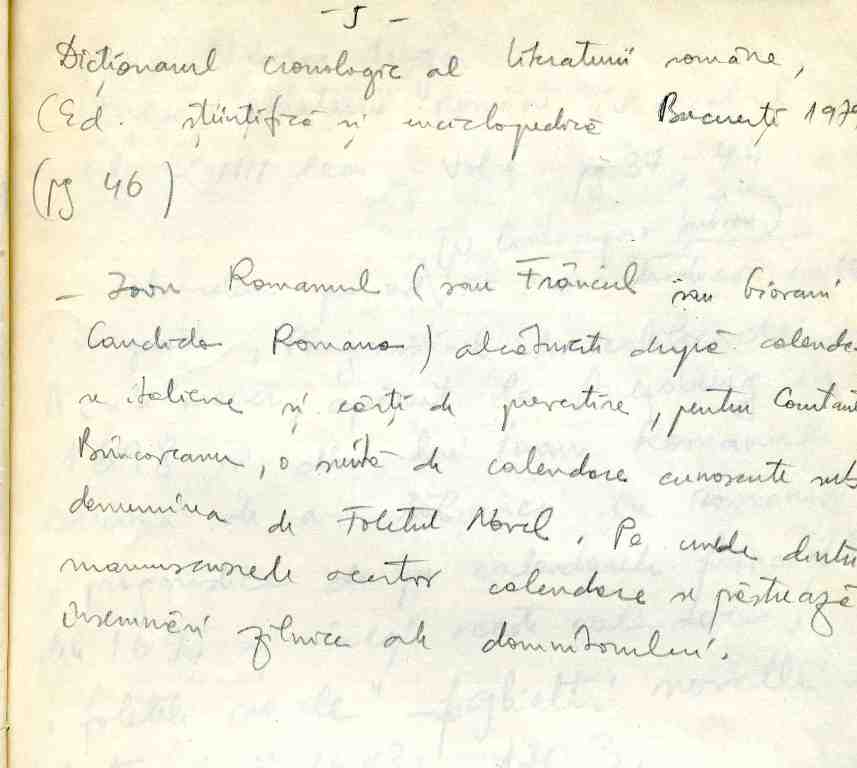 - 5 -
Dicționarul cronologic al literaturii române,
(Ed. științifică și enciclopedică București 197
(pg 46)
- Ioan Romanul (sau Frâncul sau Giovani
Candido Romano) alcătuiește după calenda
re italiene și cărți de prevestire, pentru Constan
Brîncoveanu, o suită de calendare cunoscute sub
denumirea de Foletul Novel. Pe unele dintre
manuscrisele acestor calendare se păstrează
însemnări zilnice ale domnitorului.